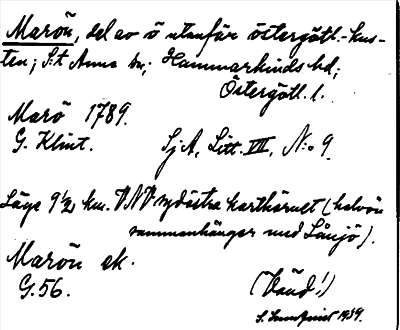 Marön, del av ö utanför östergötl.-kus-
ten; S:t Anna sn; Hammarkinds hd;
Östergötl. l.
Marö 1789.
G. Klint. Sj A, Litt. VII, N:o 9.
Läge 9½ km. VNV sydöstra karthörnet (halvön
sammanhänger med Lånjö).
Marön ek.
G. 56. (Vänd!)
S. 1939.